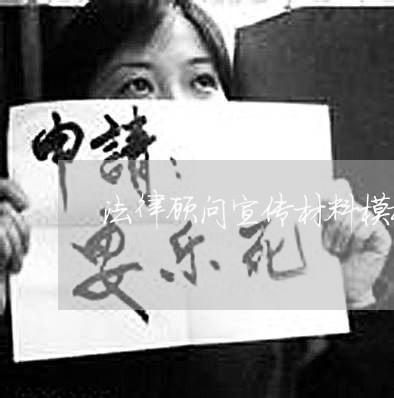 申請：
法律顾问宣传材料模
安乐死